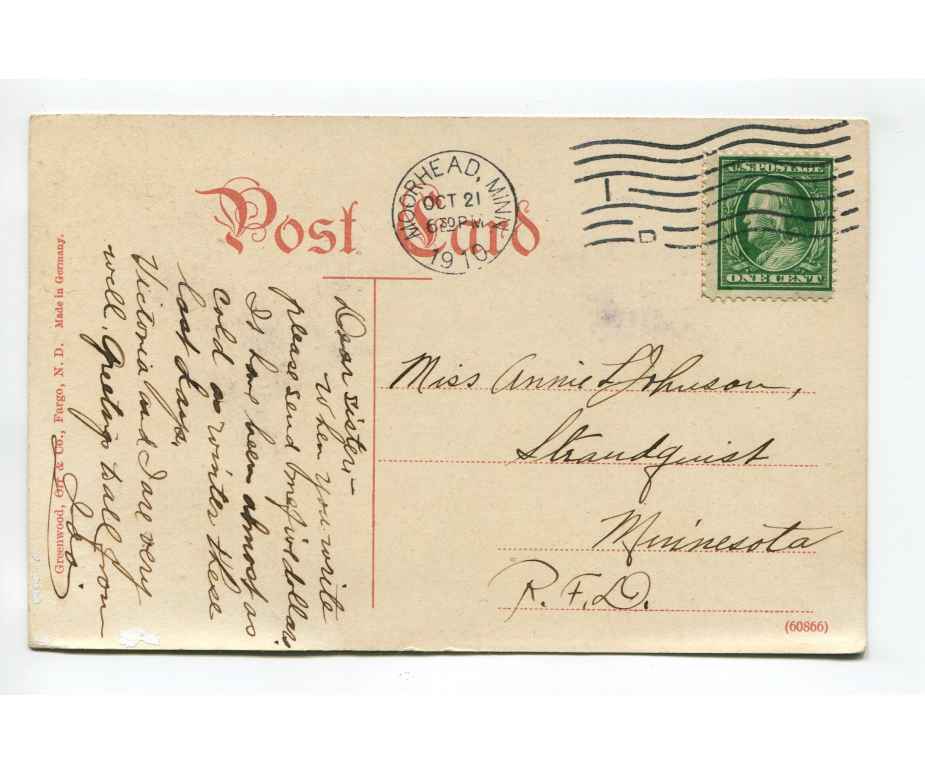 Post Card
MOORHEAD, MINN.
OCT 21
630 PM
1910
1
D
U.S. POSTAGE
ONE CENT
Dear sister—
When you write
please send me five dollars.
It has been almost as
cold as winter these
last days.
Victoria and I are very
well. Greetings to all from
Ida
Miss Annie L Johnson,
Strandquist
Minnesota
R. F. D.
(60866)
Greenwood, & Co., Fargo, N. D. Made in Germany.